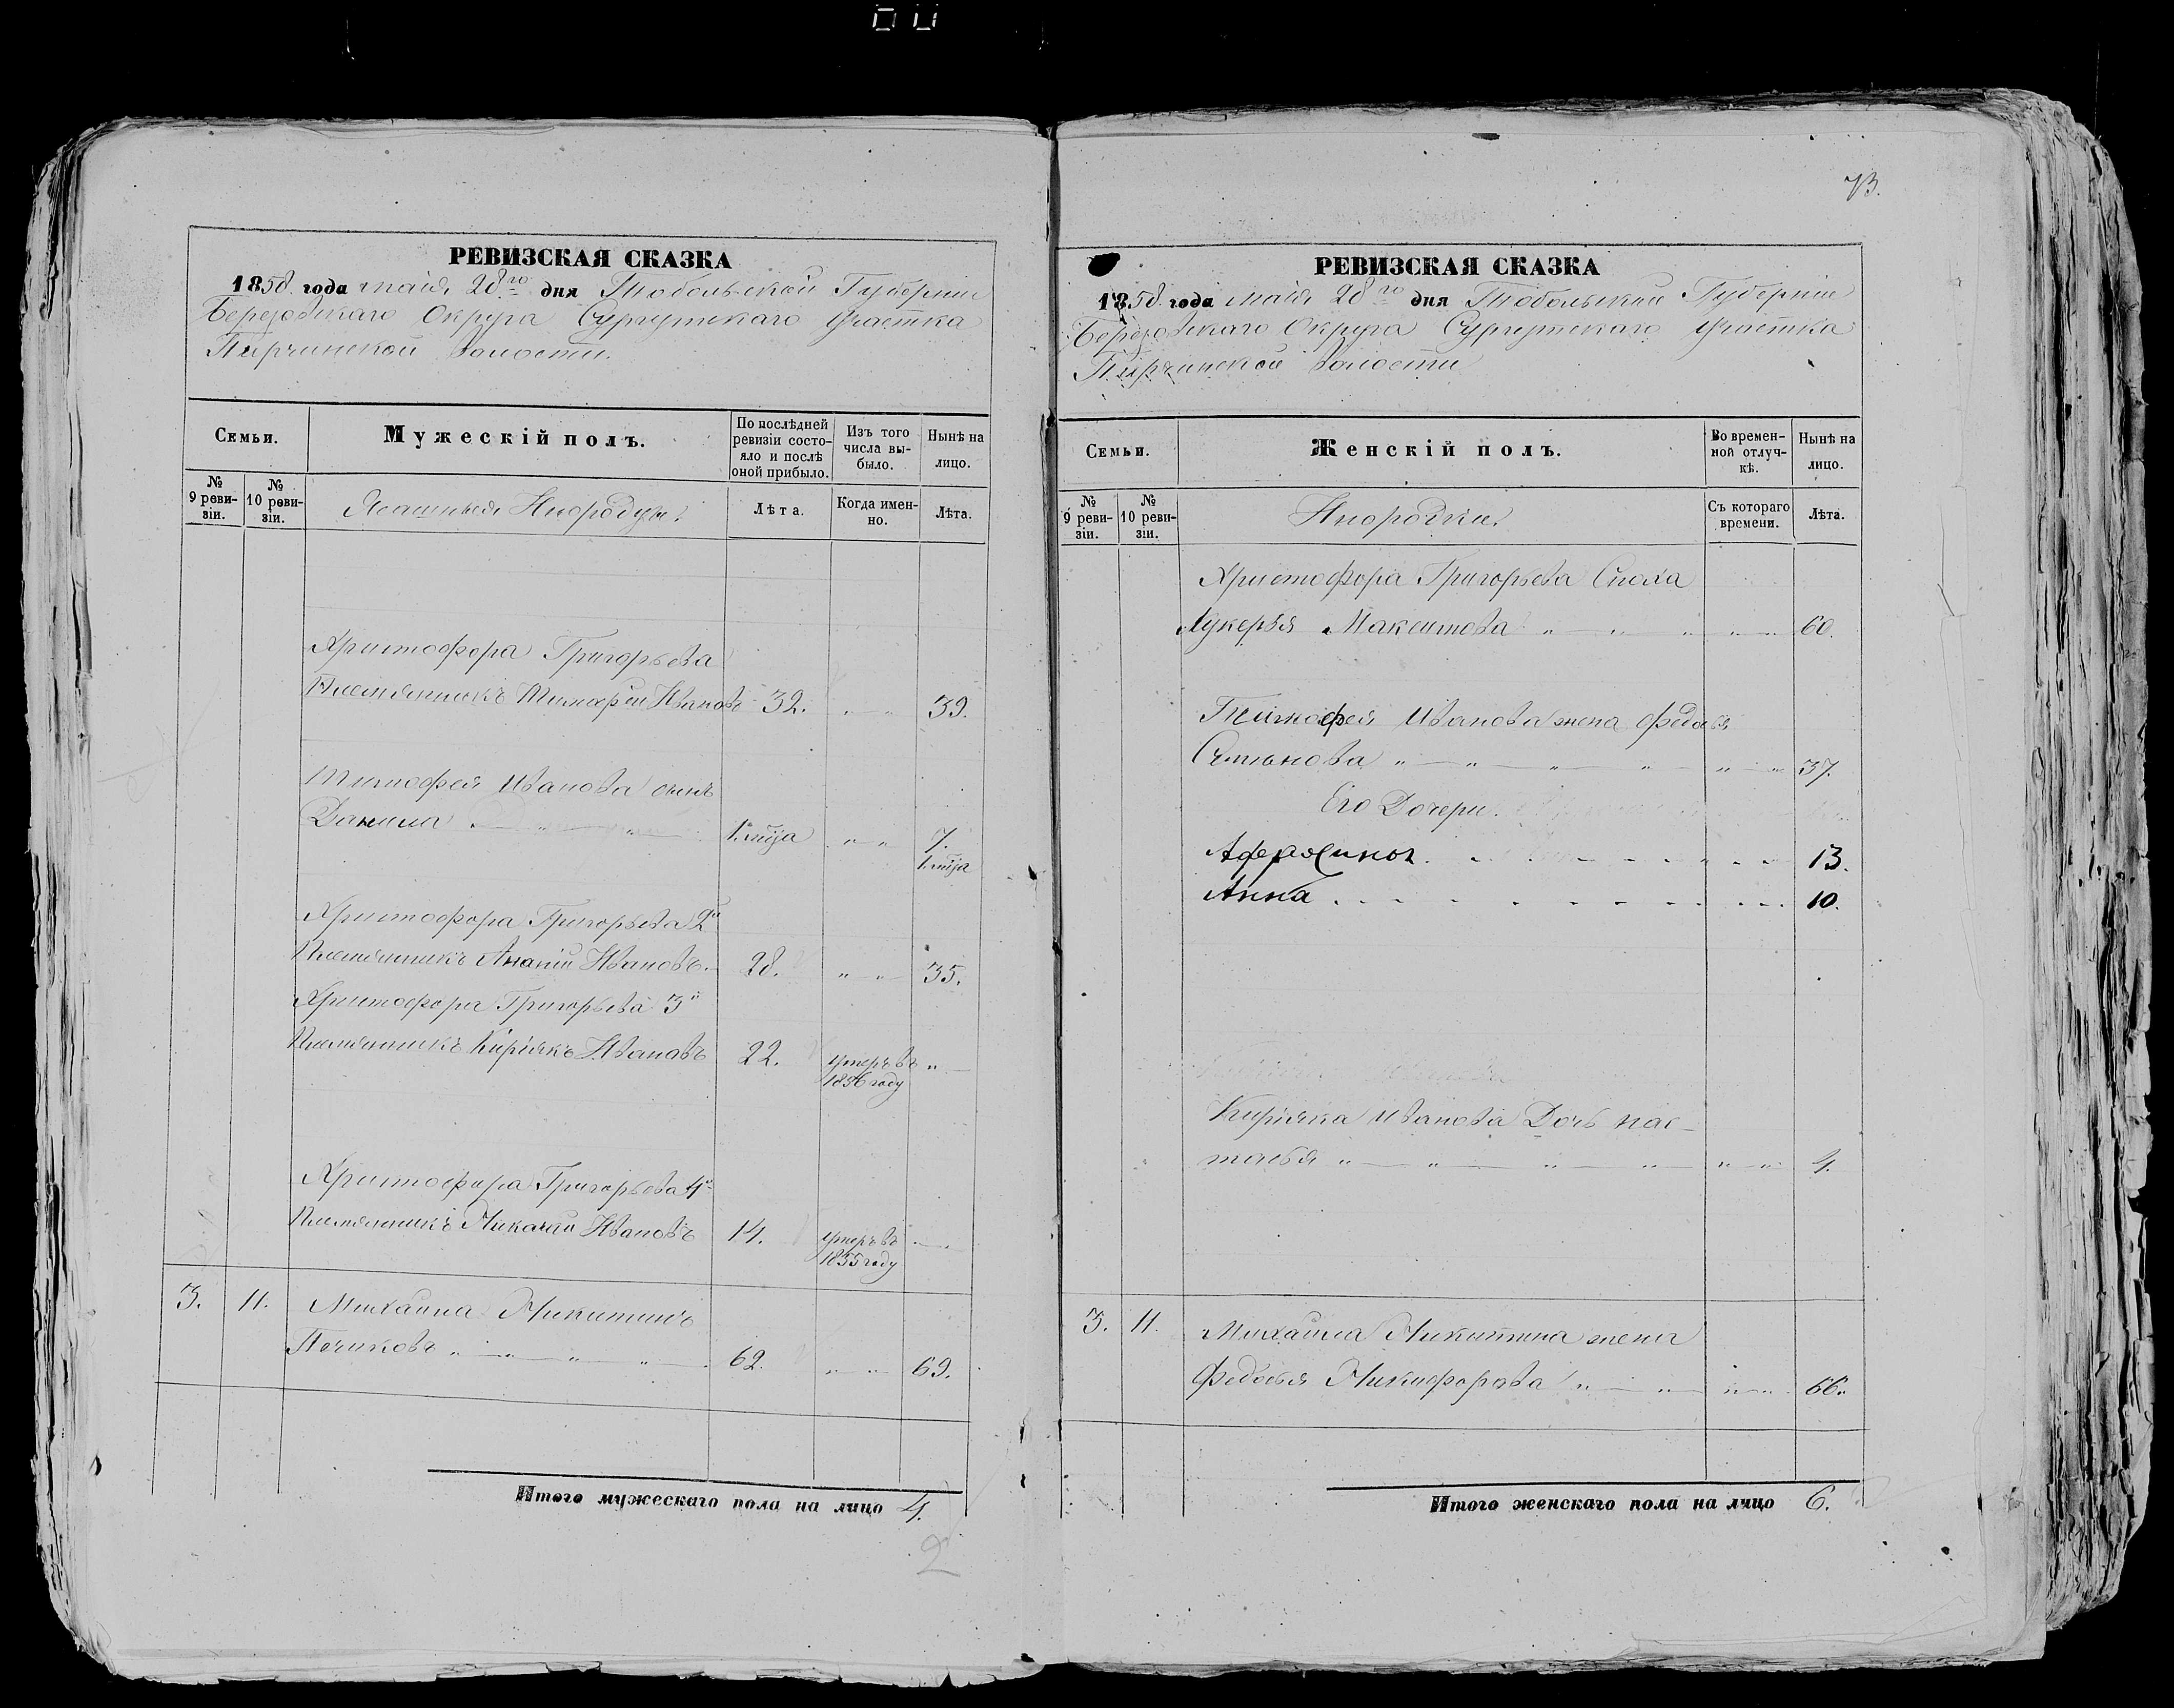 РЕВИЗСКАЯ СКАЗКА
1858 года маія 28го дня Тобольской Губерніи
Березовскаго Округа Сургутскаго участка
Пирчинской волости.
Семьи.
Мужескій полъ.
По послѣдней ревизіи состояло и послѣ оной прибыло.
Изъ того числа выбыло.
Нынѣ на лицо.
№ 9 ревизіи.
№ 10 ревизіи.
Ясашныя Инородцы.
Лѣта.
Когда именно.
Лѣта.
Христофора Григорьева
Племянникъ Тимофей Ивановъ 32. 39.
Тимофея Иванова сынъ
Данила 7.
Христофора Григорьева 2й
Племянникъ Ананій Ивановъ 28. 35.
Христофора Григорьева 3й
Племянникъ Киріякъ Ивановъ 22. умеръ въ
1856 году
Христофора Григорьева 4й
Племянникъ Ивановъ 14. умеръ въ
1855 году
3. 11. Михаила Никитинъ
62. 69.
Итого мужескаго пола на лицо 4.
2
73.
РЕВИЗСКАЯ СКАЗКА
1858 года маія 28го дня Тобольской Губерніи
Березовскаго Округа Сургутскаго участка
Пирчинской волости
Семьи.
Женскій полъ.
Во временной отлучкѣ.
Нынѣ на лицо.
№ 9 ревизіи.
№ 10 ревизіи.
Инородки.
Съ котораго времени.
Лѣта.
Христофора Григорьева Сноха
Лукерья Максимова 60.
Тимофея Иванова жена Федосья
37.
Его Дочери.
13.
Анна 10.
Киріяка Иванова Дочь Нас-
тасья 4.
3. 11. Михаила Никитина жена
Федосья Никифорова 66.
Итого женскаго пола на лицо 6.